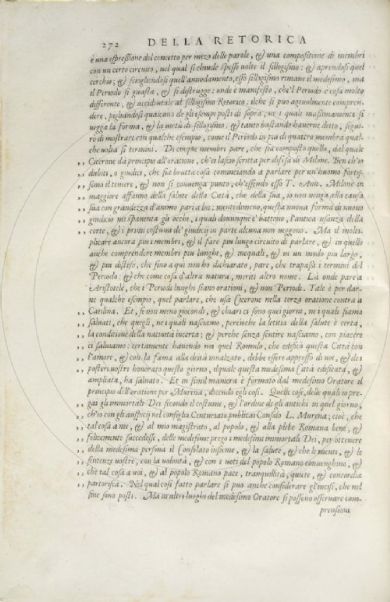 272 DELLA RETORICA
è una espressione del concetto per mezo delle parole, & una compositione di membri
con un certo circuito, nel qual si chiude spesso volte il sillogismo: & aprendosi quel
cerchio, & sciogliendosi quell'annodamento, esso sillogismo rimane il medesimo, ma
il Periodo si guasta, & si distrugge: onde è manifesto, che'l Periodo è cosa molto
differente, & accidentale al sillogismo Retorico: il che si può agevolmente compren-
dere, pigliandosi qualcuno degli esempi posti di sopra,
vegga la forma, & la metà del sillogismo, & tanto bastando haverne detto,
di mostrare con qualche esempio, come il Periodo in più di quattro membra qual-
che volta si termini. Di cinque membri pare, che sia composto quello, dal quale
Cicerone dà principio all'oratione, ch'ei lasciò scritta per difesa di Milone. Ben ch'io
dubiti, o giudici, che sia brutta cosa cominciando a parlare per un'huomo fortis-
simo il temere, & non si convenga punto, ch'essendo esso T. Annio Milone in
maggiore affanno della salute della Città, che della sua, io non venga alla causa
sua con grandezza d'animo pari a lui: nientedimeno, questa nuova forma di nuovo
giudicio mi spaventa gli occhi, i quali dovunque s'abbattono, l'antica usanza della
corte, & i primi costumi de' giudicij in parte alcuna non veggono. Ma il molti-
plicare ancora più i membri, & il fare più lungo circuito di parlare, & in quello
anche comprendere membri più lunghi, & ineguali, & in un modo più largo,
& più disteso, che fino a qui non ho dichiarato, pare, che trapassi i termini del
Periodo: & che come cosa d'altra natura, meriti altro nome. Là onde pare a
Aristotele, che i Periodi lunghi siano orationi, & non Periodi. Tale è per dar-
ne qualche esempio, quel parlare, che usa Cicerone nella terza oratione contra a
Catilina. Et, se non meno giocondi, & chiari ci sono quei giorni, ne i quali siamo
salvati, che quegli, ne i quali nasciamo, percioche la letitia della salute è certa,
la conditione della natività incerta: & perche senza sentire nasciamo, con piacere
ci salviamo: certamente havendo noi quel Romulo, che edificò questa Città con
l'amore, & con la fama alli dei innalzato, debbe essere appresso di noi, & de i
posteri nostri honorato questo giorno, il quale questa medesima Città edificata, &
ampliata, ha salvato. Et in simil maniera è formato dal medesimo Oratore il
principio dell'oration per Murena, dicendo egli così. Quelle cose, delle quali io pre-
gai gli immortali Dei secondo il costume, & l'ordine de gli antichi in quel giorno,
ch'io con gli auspicij nel consiglio Centuriato publicai Consolo L. Murena; cioè, che
tal cosa a me, & al mio magistrato, al popolo, & alla plebe Romana bene, &
felicemente succedesse, delle medesime prego i medesimi immortali Dei, per ottenere
della medesima persona il Consolato insieme, & la salute, & che le menti, & le
sentenze vostre, con la volontà, & con i voti del popolo Romano convenghino, &
che tal cosa a voi, & al popolo Romano pace, tranquillità, quiete, & concordia
partorisca. Nel qual così fatto parlare si può anche considerare gl'incisi, che nel
fine sono posti. Ma in altri luoghi del medesimo Oratore si possono osservare com-
prensioni